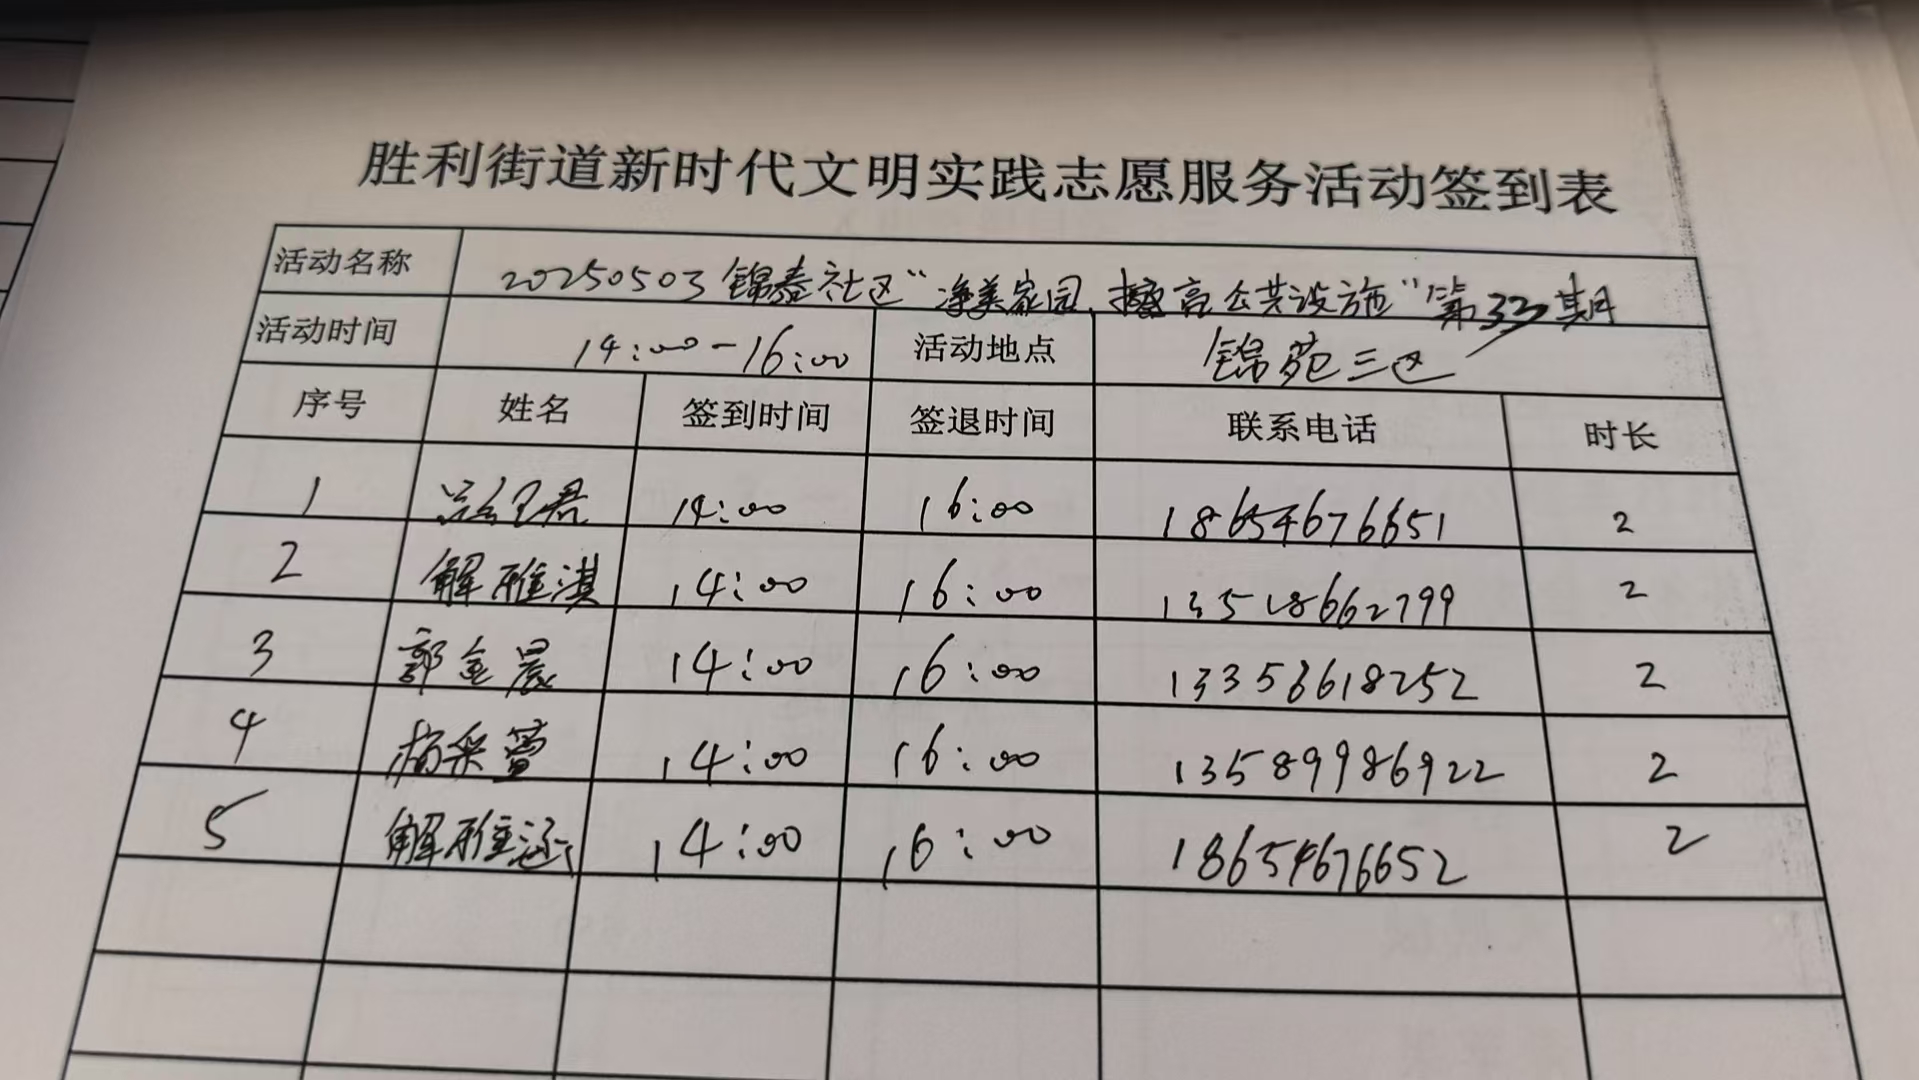 胜利街道新时代文明实践志愿服务活动签到表
活动名称 20250503锦泰社区“净美家园,擦亮公共设施”第33期
活动时间 14:00-16:00 活动地点 锦苑三区
序号 姓名 签到时间 签退时间 联系电话 时长
1 14:00 16:00 18654676651 2
2 解雅淇 14:00 16:00 13518662799 2
3 郭金晨 14:00 16:00 13356618252 2
4 杨采萱 14:00 16:00 13589986922 2
5 解雅涵 14:00 16:00 18654676652 2